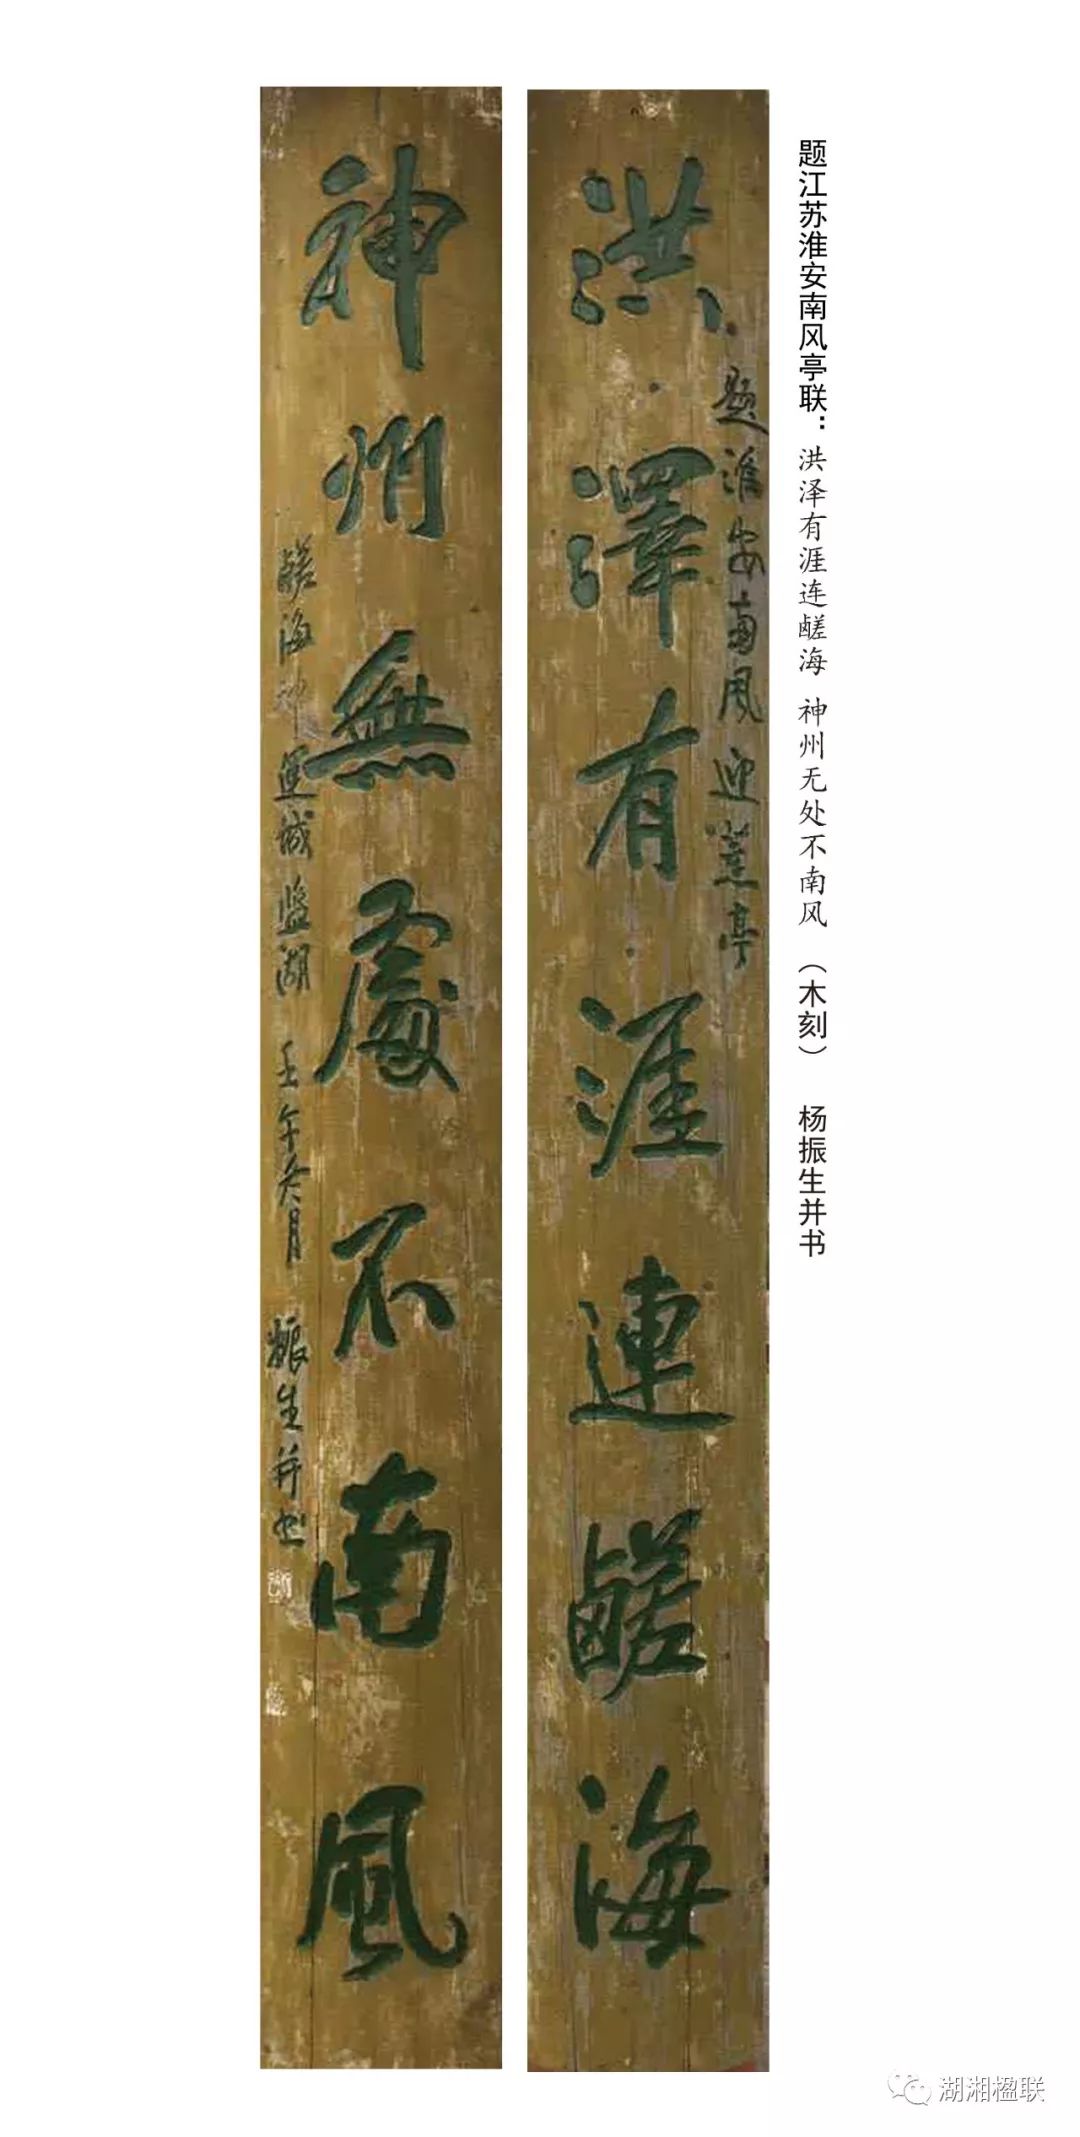 题江苏淮安南风亭联：洪泽有涯连鹾海 神州无处不南风 （木刻） 杨振生并书
题淮安南风迎薰亭
洪澤有涯連鹺海
神州無處不南風
鹺海即運城盐湖 壬午冬月 振生并书
湖湘楹联